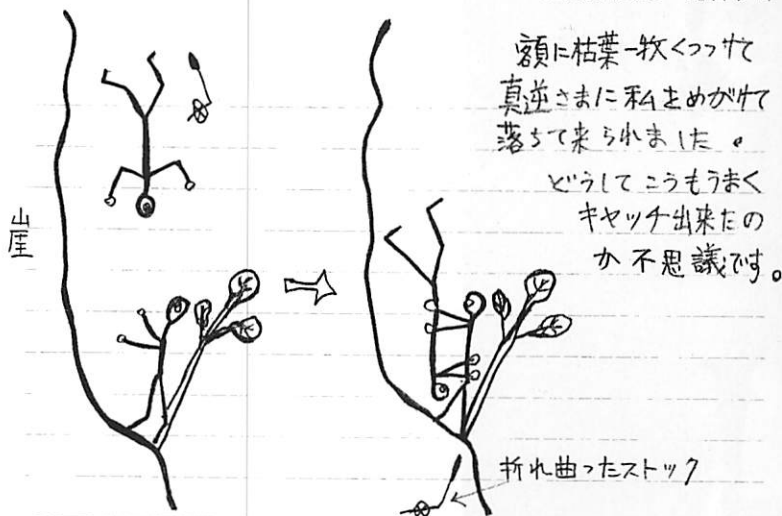 額に枯葉一枚くっつけて
真逆さまに私をめがけて
落ちて来られました。
どうしてこうもうまく
キャッチ出来たの
か不思議です。
崖
折れ曲ったストック